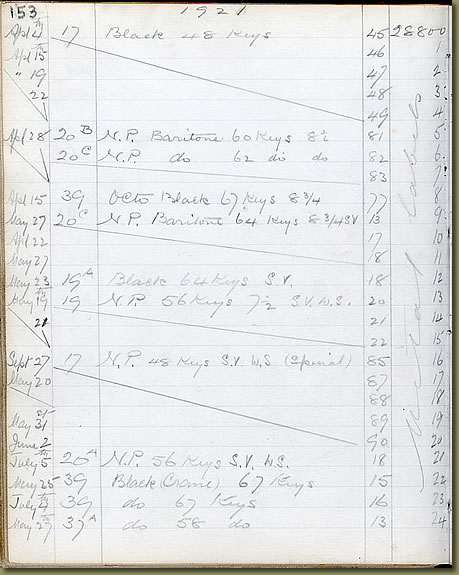 153 1921
Apl 4th 17 Black 48 Keys 45 28800
Apl 15th 46 1
" 19 47 2
22 48 3
49 4
Apl 28 20B N.P. Baritone 60 Keys 8½ 81 5
20C N.P. do 62 do do 82 6
83 7
Apl 15 39 Octo Black 67 Keys 8 3/4 77 8
May 27 20C N.P. Baritone 64 Keys 8 3/4 SV 13 9
Apl 22 17 10
May 27 18 11
May 23 19A Black 64 Keys S.V. 18 12
May 19th 19 N.P. 56 Keys 7½ S.V. W.S. 20 13
21 21 14
22 15
Sept 27 17 N.P. 48 Keys S.V. W.S (Special) 85 16
May 20 87 17
88 18
May 31st 89 19
June 2 90 20
July 5th 20A N.P. 56 Keys S.V. W.S. 18 21
May 25 39 Black (Crane) 67 Keys 15 22
July 4th 39 do 67 Keys 16 23
May 27 37A do 58 do 13 24
Metal